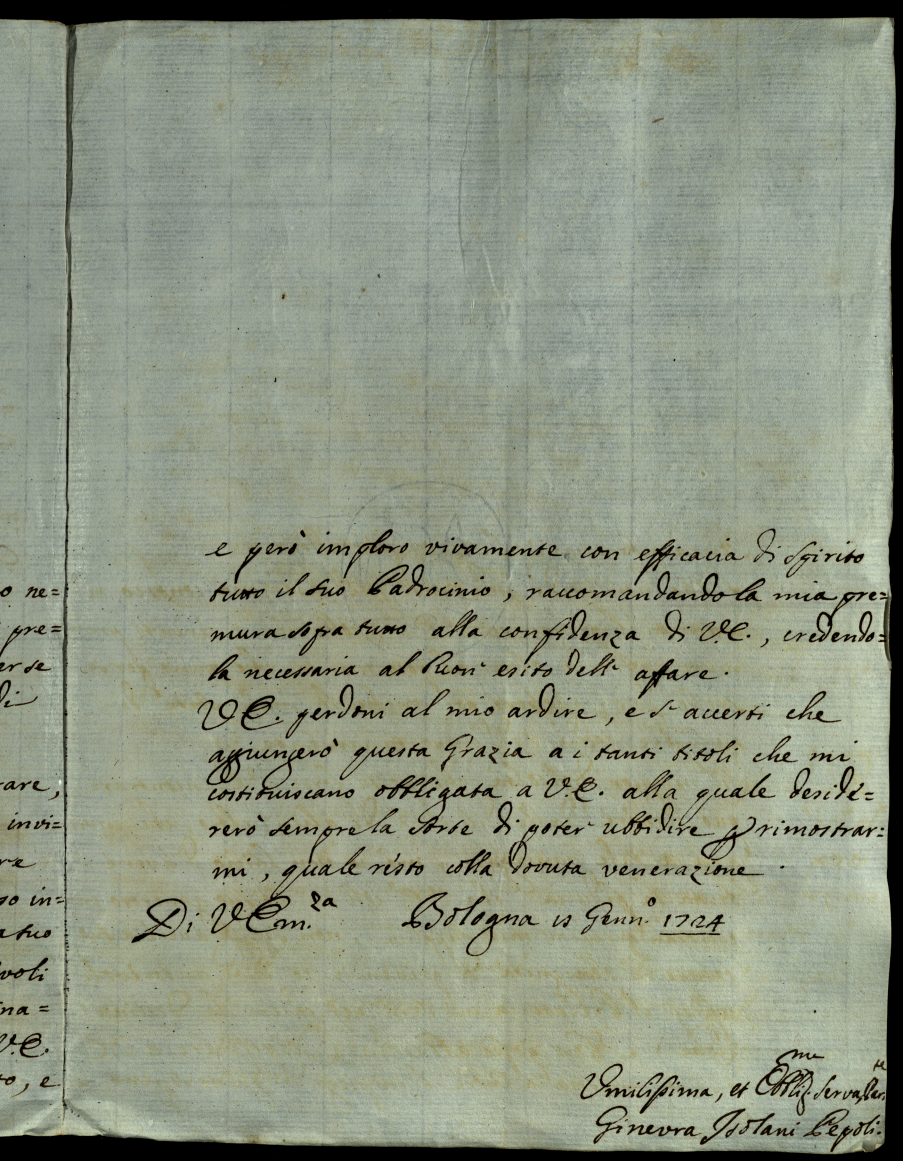 o ne=
pre=
er se
di
rare,
invi=
re
so in=
a suo
voli
ina=
V.E.
to, e
e però imploro vivamente con efficacia di spirito
tutto il suo Padrocinio, raccomandando la mia pre=
mura sopra tutto alla confidenza di V.E., credendo=
la necessaria al buon esito dell' affare.
V.E. perdoni al mio ardire, e s' accerti che
aggiungerò questa Grazia a i tanti titoli che mi
costituiscano obbligata a V.E. alla quale deside=
rerò sempre la sorte di poter ubbidire p rimostrar=
mi, quale resto colla dovuta venerazione
Di V Em.za Bologna 15 Genn.o 1724
Umilissima, et Obblig.ma Serva
Ginevra Isolani Pepoli.